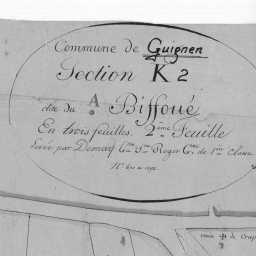 Commune de Guignen
Section K 2
dite du A Biffoué
En trois feuilles. 2ème Feuille
Levée par Demay Gtre Sre Roger Gtre de 1ère Classe
de Crap